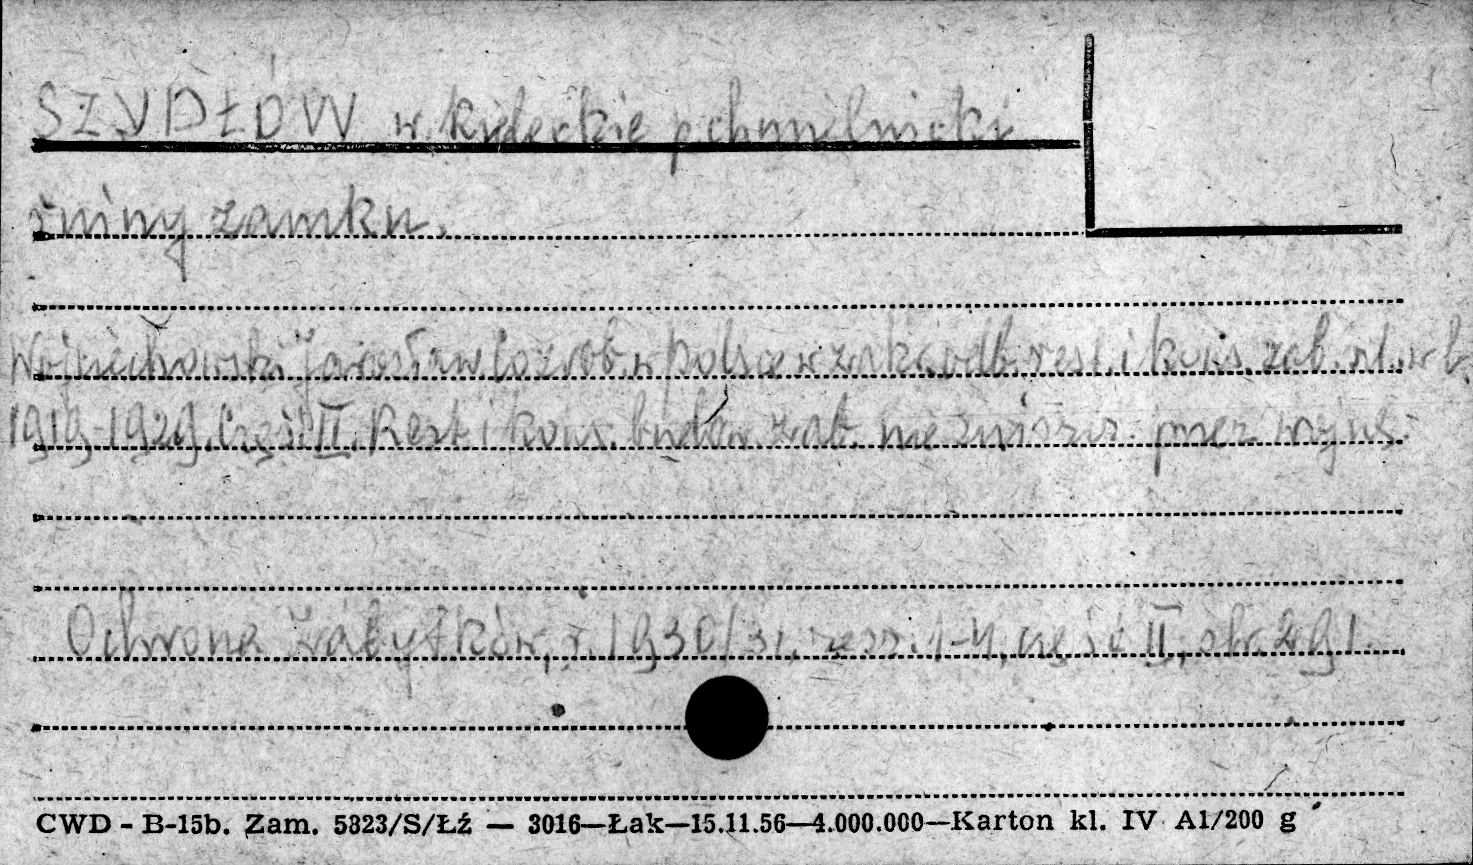 SZYDŁÓW w. kieleckie p chmielnicki
ruiny zamku.
Wojciechowski Jarosław Co zrob. w Polsce w zakr. odb. rest. i kons. zab. st. w l.
1919-1929. Część II. Rest. i kons. budow. zab. nie zniszcz. przez wojnę.
Ochrona Zabytków, r. 1930/31, zesz. 1-4, część II, str. 291.
CWD - B-15b. Zam. 5823/S/Łź — 3016—Łak—15.11.56—4.000.000—Karton kl. IV A1/200 g